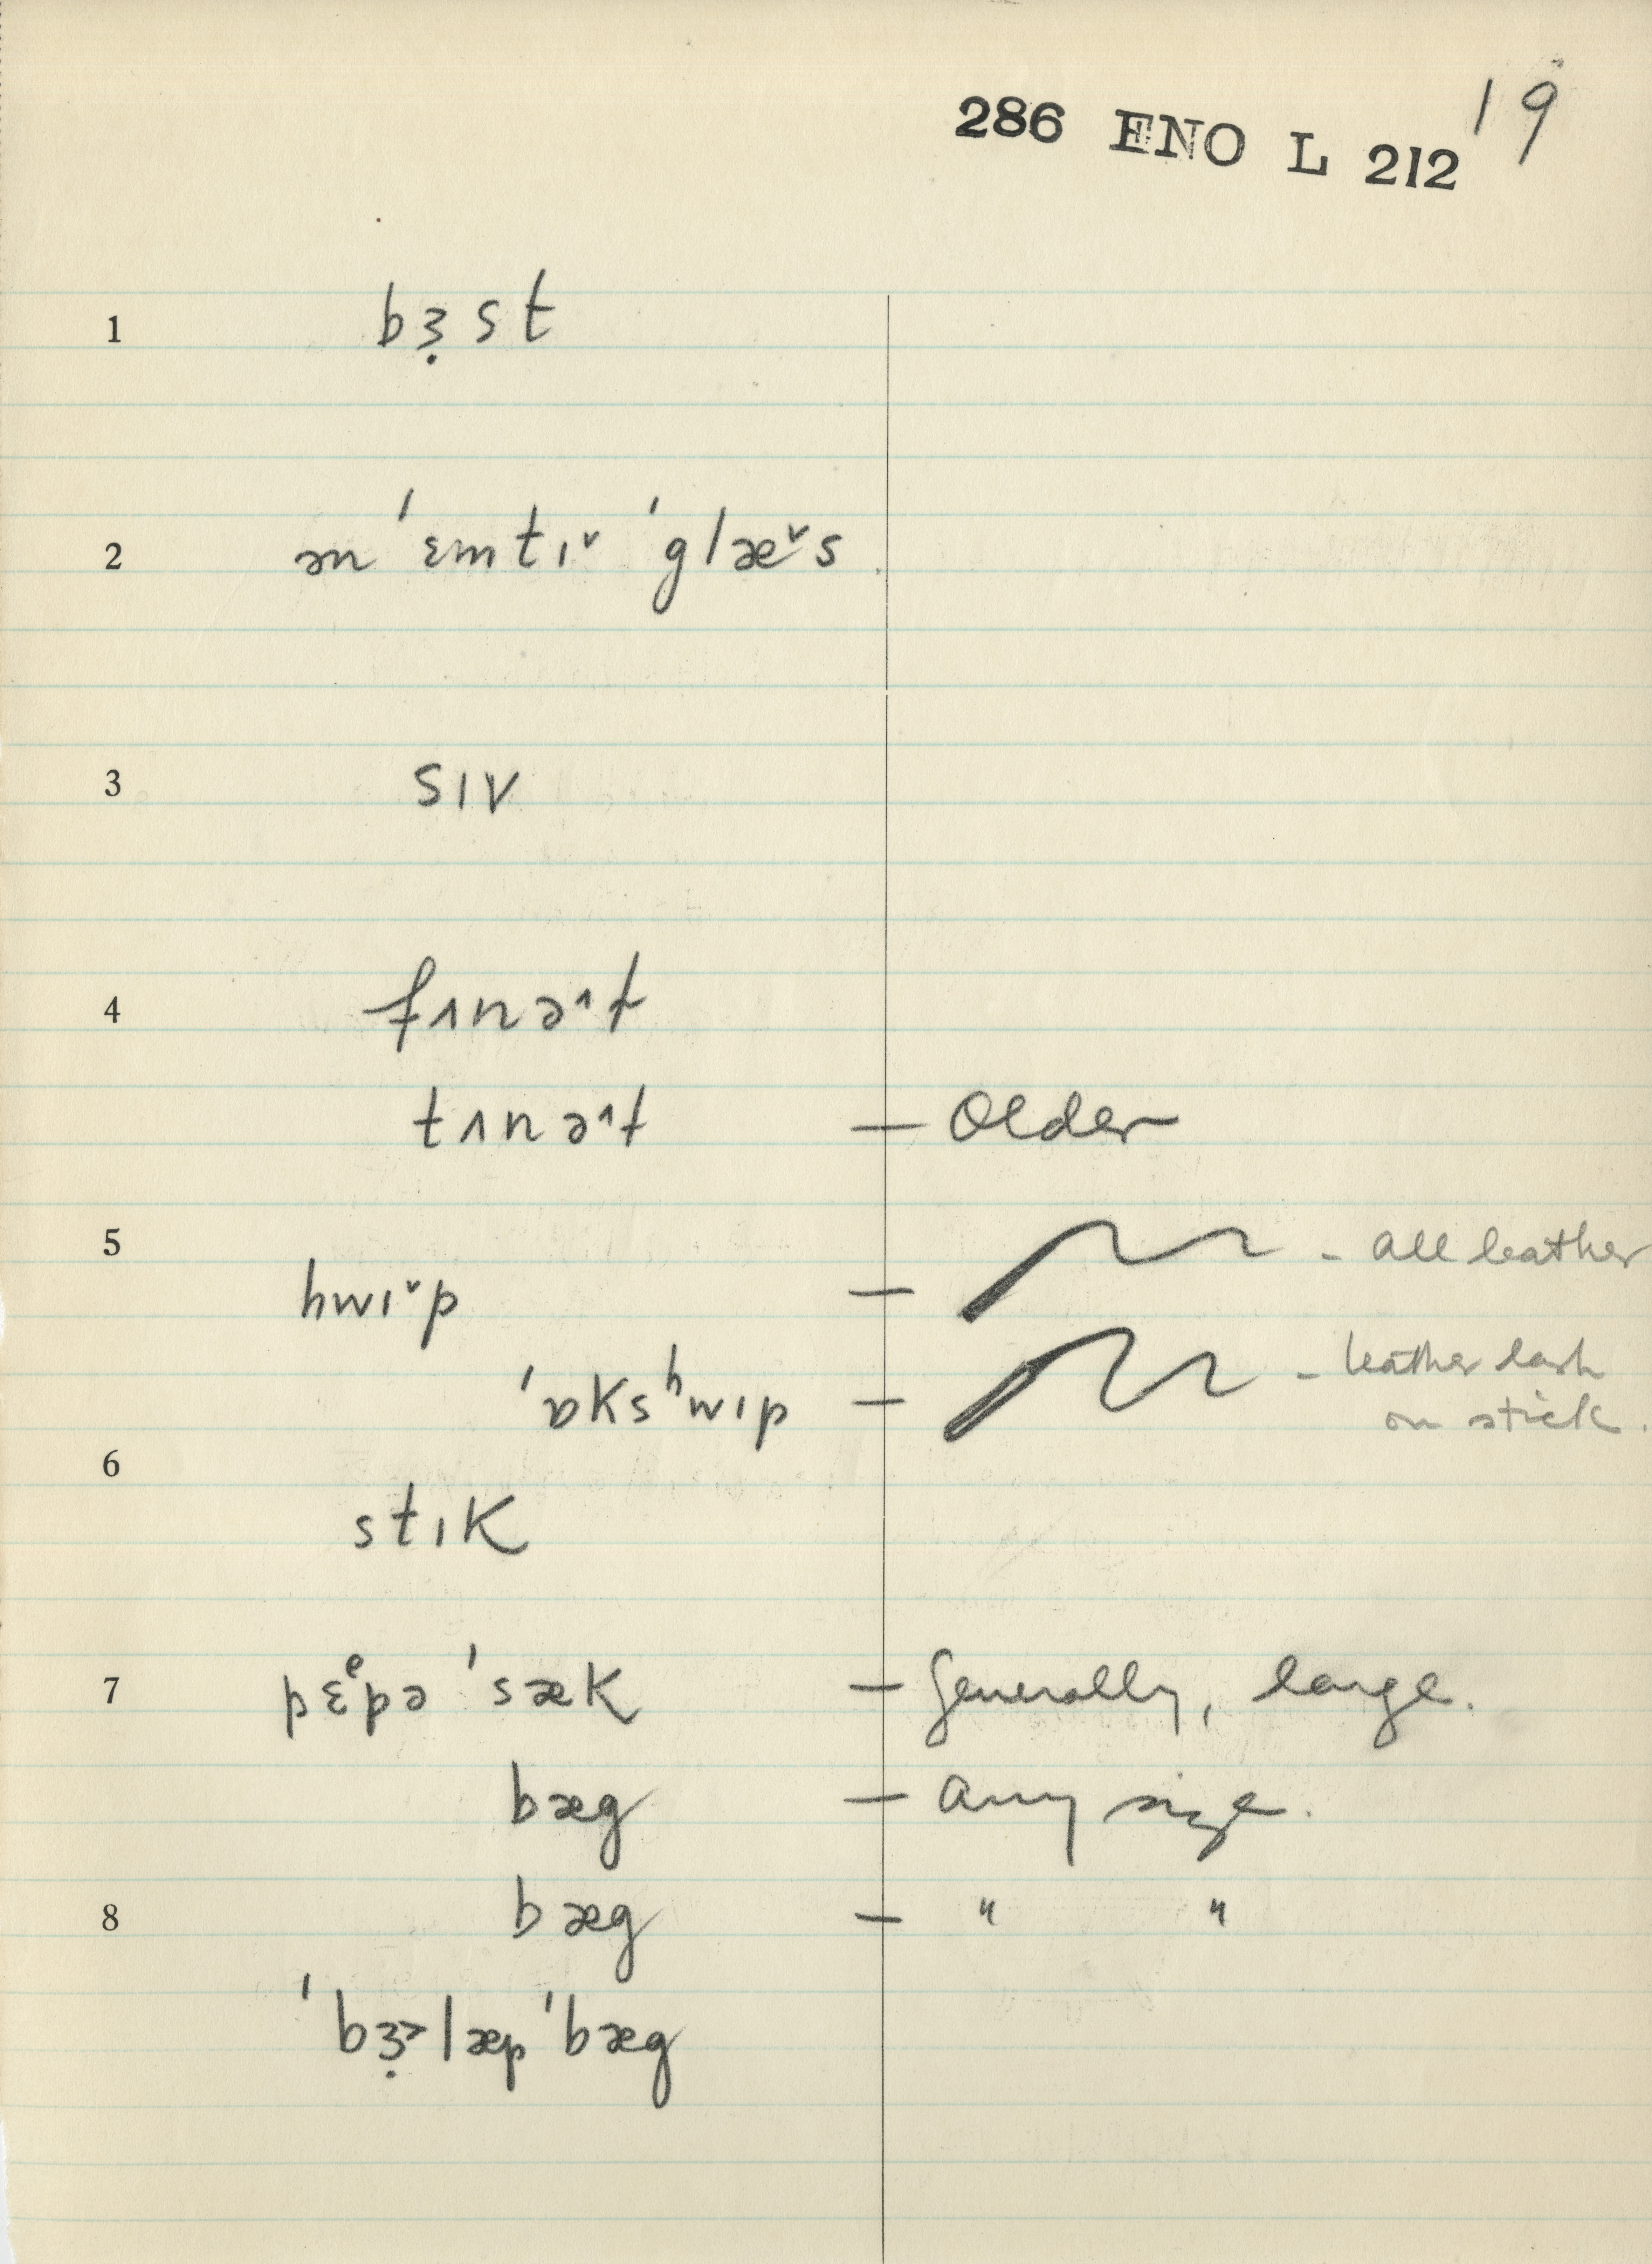 286 ENO L 212 19
1 bɜ̣st
2 ən ˈɛmtɪ˅ ˈglæ˅s
3 sɪv
4 fʌnəˈ^t
tʌnəˈ^t — Older
5 — all leather
hwɪ˅p —
ˈɒksʰwɪp — leather lash
on stick.
6
stɪk
7 pɛᵉpə ˈsæk — Generally, large.
bæg — any size.
8 bæg — " "
ˈbɜ̣˃læpˈbæg